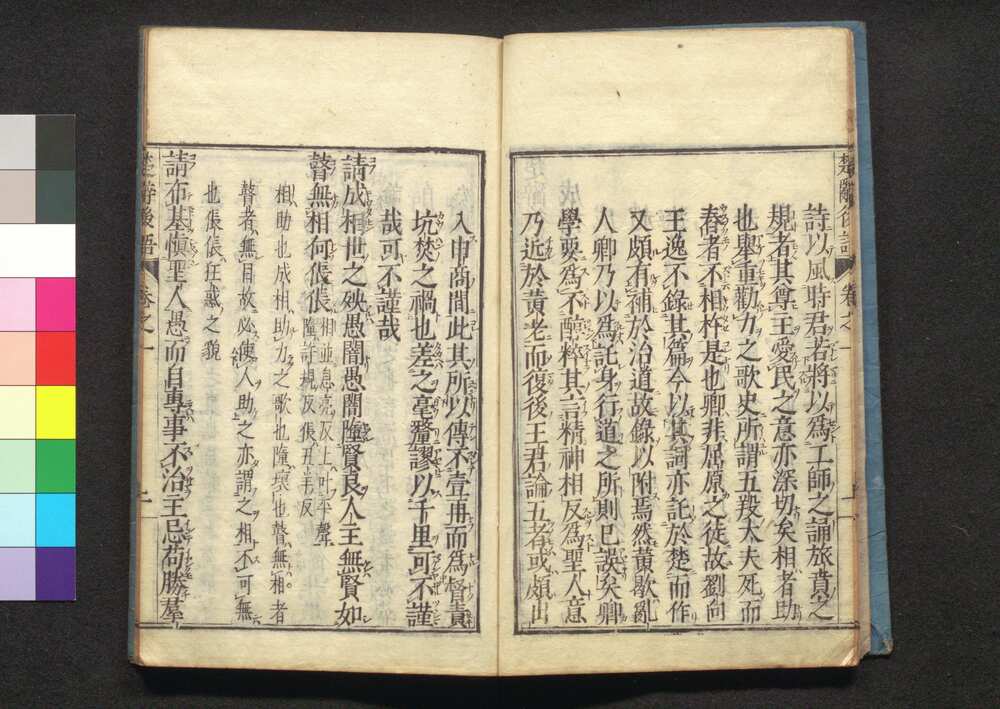 楚辭後語 卷之一
詩以風時君若將以爲工師之誦旅賁之
規者其尊王愛民之意亦深切矣相者助
也舉重勸力之歌史所謂五羖大夫死而
舂者不相杵是也卿非屈原之徒故劉向
王逸不錄其篇今以其詞亦託於楚而作
又頗有補於治道故錄以附焉然黃歇亂
人卿乃以爲託身行道之所則已誤矣卿
學要爲不醇粹其言精神相反爲聖人意
乃近於黃老而復後王君論五者或頗出
入申商間此其所以傳不壹再而爲督責
坑焚之禍也差之毫釐謬以千里可不謹
哉可不謹哉
請成相世之殃愚闇愚闇墮賢良人主無賢如
瞽無相何倀倀相並息亮反上吐平聲墮許規反倀丑羊反
相助也成相助力之歌也墮壞也瞽無相者
瞽者無目故必使人助之亦謂之相不可無
也倀倀狂惑之貌
請布基愼聖人愚而自專事不治主忌苟勝羣
楚辭後語 卷之一 二